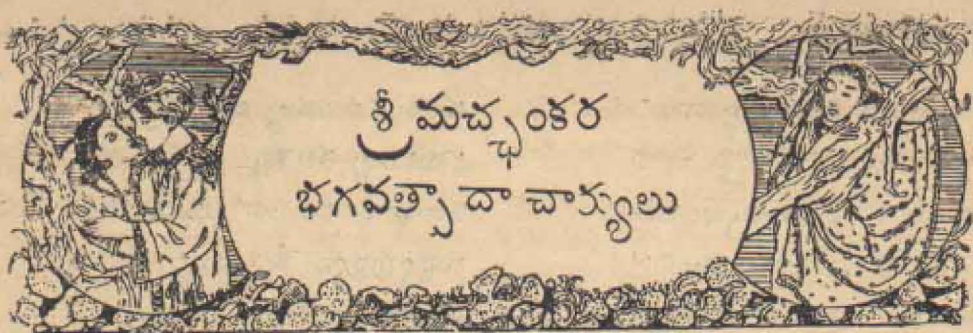 శ్రీ మచ్ఛంకర
భగవత్పా దా చార్యులు